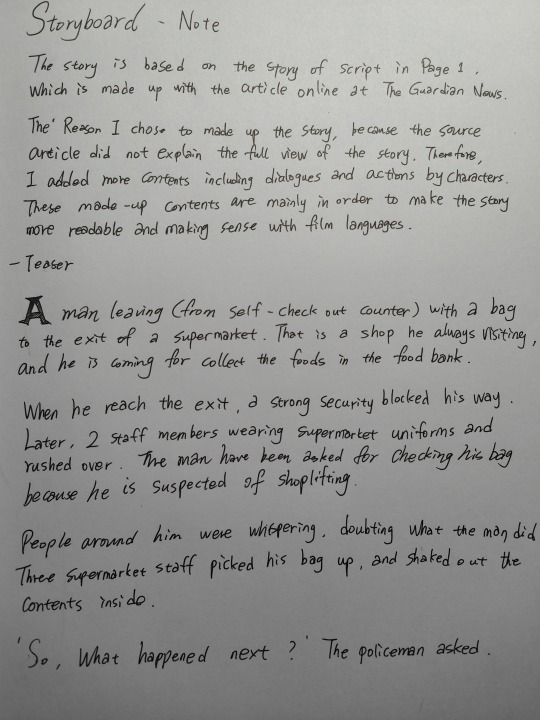 Storyboard - Note
The story is based on the story of script in Page 1.
Which is made up with the article online at The Guardian News.
The Reason I chose to made up the story, because the source
article did not explain the full view of the story. Therefore,
I added more contents including dialogues and actions by characters.
These made-up contents are mainly in order to make the story
more readable and making sense with film languages.
- Teaser
A man leaving (from self-check out counter) with a bag
to the exit of a supermarket. That is a shop he always visiting,
and he is coming for collect the foods in the food bank.
When he reach the exit, a strong security blocked his way.
Later, 2 staff members wearing supermarket uniforms and
rushed over. The man have been asked for checking his bag
because he is suspected of shoplifting.
People around him were whispering, doubting what the man did
Three supermarket staff picked his bag up, and shaked out the
contents inside.
'So, What happened next?' The policeman asked.